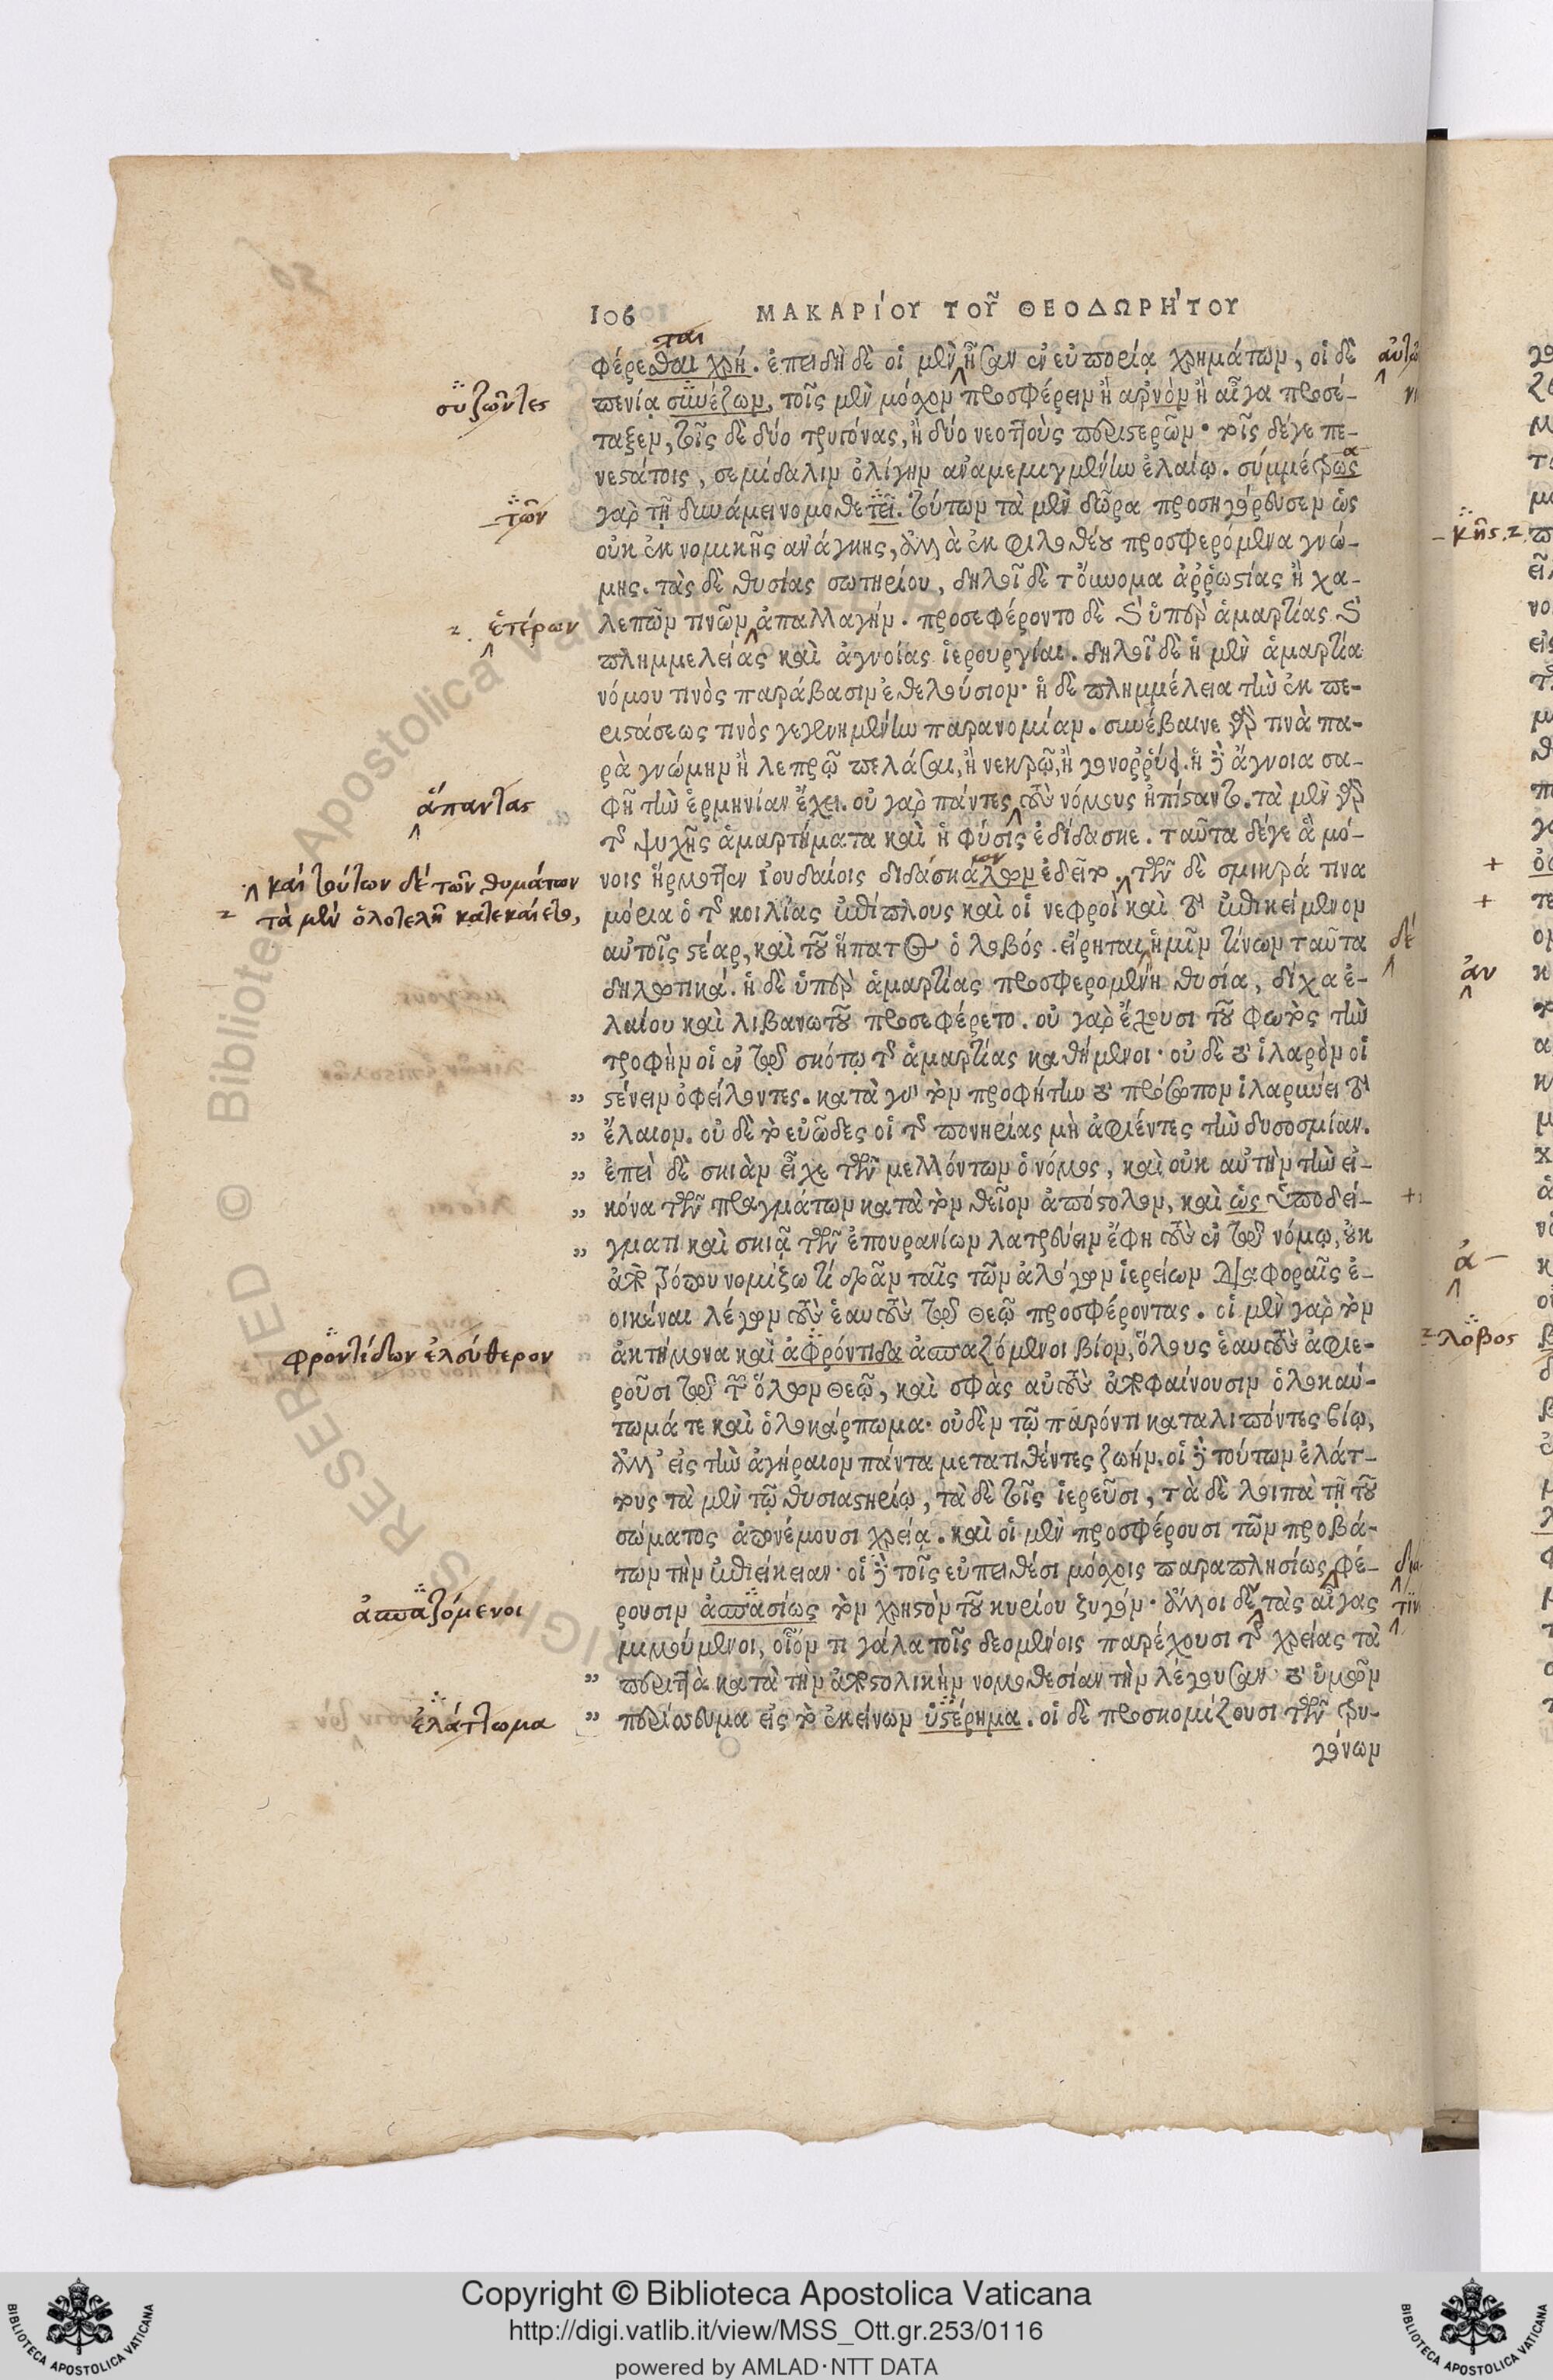 106 ΜΑΚΑΡΙΌΥ ΤΟΥ͂ ΘΕΟΔΩΡΗΊΤΟΥ
ται
φέρεσθαι χρή. ἐπειδὴ δὲ οἱ μὲν ἦσαν ἐν εὐπορίᾳ χρημάτων, οἱ δὲ
συζῶντες
πενίᾳ συνέζων, τοῖς μὲν μόσχον προσφέρειν ἢ ἀρνὸν ἢ αἶγα προσέ-
ταξεν, τοῖς δὲ δύο τρυγόνας, ἢ δύο νεοττοὺς περιστερῶν· τοῖς δέγε πε-
νεστάτοις, σεμίδαλιν ὀλίγην ἀναμεμιγμένην ἐλαίῳ. σύμμέτρως
α
-τῶν
γὰρ τῇ δυνάμει νομοθετεῖ. τούτων τὰ μὲν δῶρα προσηγόρευσεν ὡς
οὐκ ἐκ νομικῆς ἀνάγκης, ἀλλὰ ἐκ φιλοθέου προσφερόμενα γνώ-
μης. τὰς δὲ θυσίας σωτηρίου, δηλοῖ δὲ τοὔνομα ἀῤῥωστίας ἢ χα-
ἑτέρων
λεπῶν τινῶν ἀπαλλαγήν. προσεφέροντο δὲ καὶ ὑπὲρ ἁμαρτίας καὶ
πλημμελείας καὶ ἀγνοίας ἱερουργίαι. δηλοῖ δὲ ἡ μὲν ἁμαρτία
νόμου τινὸς παράβασιν ἐθελούσιον· ἡ δὲ πλημμέλεια τὴν ἐκ πε-
ριστάσεως τινὸς γεγενημένην παρανομίαν. συνέβαινε γὰρ τινὰ πα-
ρὰ γνώμην ἢ λεπρῷ πελάσαι, ἢ νεκρῷ, ἢ γονοῤῥύῳ. ἡ δὲ ἄγνοια σα-
ἅπαντας
φῆ τὴν ἑρμηνίαν ἔχει. οὐ γὰρ πάντες τοὺς νόμους ἠπίσταντο. τὰ μὲν γὰρ
τῆς ψυχῆς ἁμαρτήματα καὶ ἡ φύσις ἐδίδασκε. ταῦτα δέγε ἃ μό-
καὶ τούτων δὲ τῶν θυμάτων
τὰ μὲν ὁλοτελῆ κατεκαίετο,
νοις ἥρμοττεν ἰουδαίοις διδάσκαλον ἐδεῖτο. τῶν δὲ σμικρά τινα
μόρια ὁ τῆς κοιλίας ἐπίπλους καὶ οἱ νεφροὶ καὶ τὸ ἐπικείμενον
αὐτοῖς στέαρ, καὶ τοῦ ἥπατος ὁ λοβός. εἴρηται ἡμῖν τίνων ταῦτα
δὲ
δηλωτικά. ἡ δὲ ὑπὲρ ἁμαρτίας προσφερομένη θυσία, δίχα ἐ-
λαίου καὶ λιβανωτοῦ προσεφέρετο. οὐ γὰρ ἔχουσι τοῦ φωτὸς τὴν
τροφὴν οἱ ἐν τῷ σκότῳ τῆς ἁμαρτίας καθήμενοι· οὐ δὲ τὸ ἱλαρὸν οἱ
„ στένειν ὀφείλοντες. κατὰ γὰρ τὸν προφήτην τὸ πρόσωπον ἱλαρύνει τὸ
„ ἔλαιον. οὐ δὲ τὸ εὐῶδες οἱ τῆς πονηρίας μὴ ἀφιέντες τὴν δυσοσμίαν.
„ ἐπεὶ δὲ σκιὰν εἶχε τῶν μελλόντων ὁ νόμος, καὶ οὐκ αὐτὴν τὴν εἰ-
„ κόνα τῶν πραγμάτων κατὰ τὸν θεῖον ἀπόστολον, καὶ ὡς ὑποδεί-
„ γματι καὶ σκιᾷ τῶν ἐπουρανίων λατρεύειν ἔφη τοὺς ἐν τῷ νόμῳ, οὐκ
ἀπὸ τρόπου νομίζω τί δρᾶν ταῖς τῶν ἀλόγων ἱερείων διαφοραῖς ἐ-
οικέναι λέγων τοὺς ἑαυτοὺς τῷ θεῷ προσφέροντας. οἱ μὲν γὰρ τὸν
φροντίδων ἐλεύθερον
ἀκτήμονα καὶ ἀφρόντιδα ἀσπαζόμενοι βίον, ὅλους ἑαυτοὺς ἀφιε-
ροῦσι τῷ τῶν ὅλων θεῷ, καὶ σφὰς αὐτοὺς ἀποφαίνουσιν ὁλοκαύ-
τωμά τε καὶ ὁλοκάρπωμα· οὐδὲν τῷ παρόντι καταλιπόντες βίῳ,
ἀλλ' εἰς τὴν ἀγήραιον πάντα μετατιθέντες ζωήν. οἱ δὲ τούτων ἐλάτ-
τους τὰ μὲν τῷ θυσιαστηρίῳ, τὰ δὲ τοῖς ἱερεῦσι, τὰ δὲ λοιπὰ τῇ τοῦ
σώματος ἀπονέμουσι χρείᾳ. καὶ οἱ μὲν προσφέρουσι τῶν προβά-
των τὴν ἐπιείκειαν· οἱ δὲ τοῖς εὐπειθέσι μόσχοις παραπλησίως φέ-
ἀσπαζόμενοι
ρουσιν ἀσπασίως τὸν χρηστὸν τοῦ κυρίου ζυγόν· ἄλλοι δὲ τὰς αἶγας
μιμούμενοι, οἷόν τι γάλα τοῖς δεομένοις παρέχουσι τῆς χρείας τὰ
„ περιττὰ κατὰ τὴν ἀποστολικὴν νομοθεσίαν τὴν λέγουσαν· τὸ ὑμῶν
ἐλάττωμα
„ περίσσευμα εἰς τὸ ἐκείνων ὑστέρημα. οἱ δὲ προσκομίζουσι τῶν τρυ-
γόνων
Copyright © Biblioteca Apostolica Vaticana
http://digi.vatlib.it/view/MSS_Ott.gr.253/0116
powered by AMLAD·NTT DATA